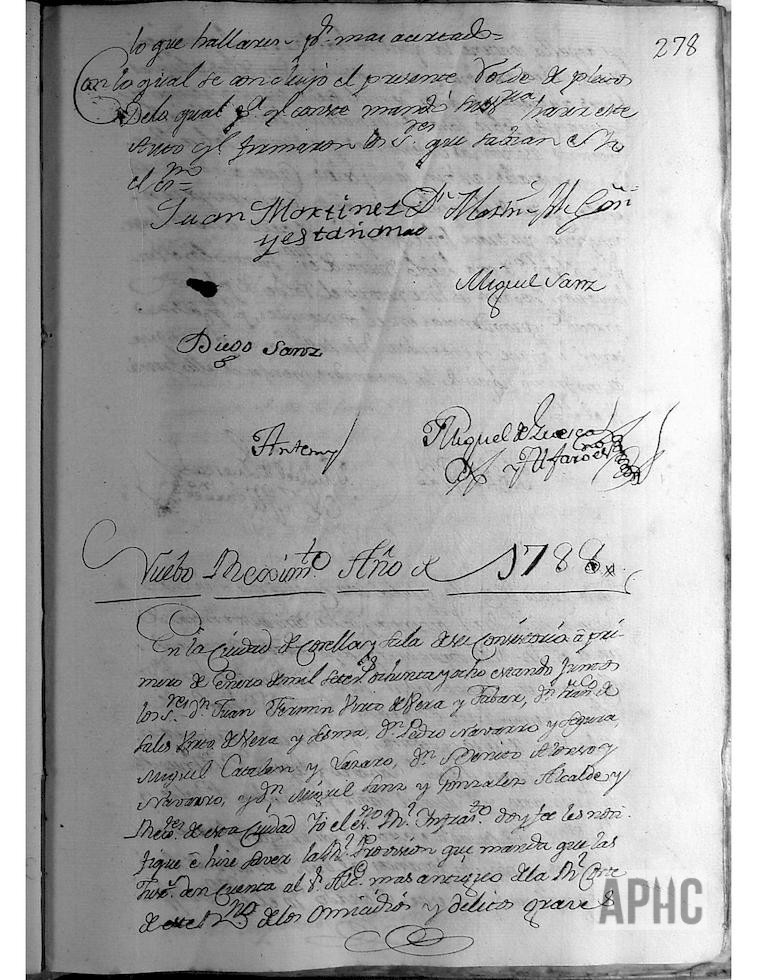 278
lo que hallaren pr. mas acertado=
Con lo qual se concluyó el presente Rolde de pleitos
Dela qual pa. ql. conste mandó hazer este
Auto ql. firmaron los Sres. que savian é Yo
el Sno=
Juan Martinez Dn. Martn.
y estañonao
Miguel Sanz
Diego Sanz
Antemy
Miguel de Luesca
y Alfaro esno.
Nuebo Reximto. Año de 1788.
En la Ciudad de Corella y sala de su Consistorio á pri-
mero de Enero de mil setezs. ochenta y ocho estando juntos
los Sres. Dn. Juan Fermin Virto de Vera y Tabar, Dn. Franco. de
Sales Virto de Vera y Lesma, Dn. Pedro Navarro y Segura,
Miguel Catalan y Lazaro, Dn. Benito Alonso y
Navarro, y Dn. Miguel Sanz y Gonzalez Alcalde y
Rexres. de esta Ciudad Yo el esno. Rl. Infrato. doy fee les noti-
fique é hize saver la Rl. Provision que manda que las
Justs. den cuenta al Sr. Alce. mas antiguo de la Rl. Corte
de este Rno. de los omicidios y delitos graves
APHC